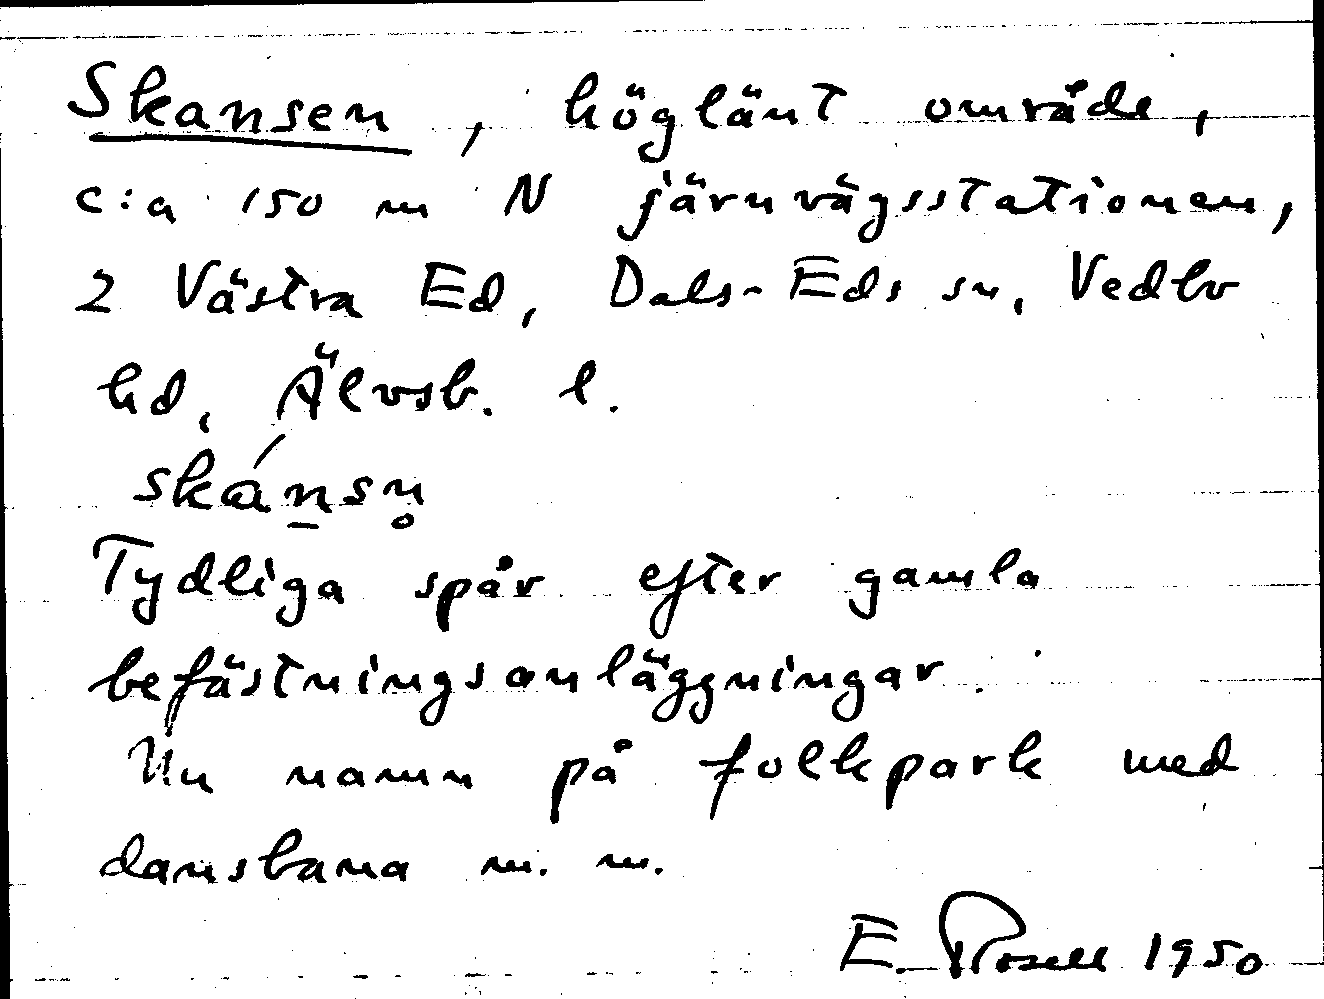 Skansen, höglänt område,
c:a 150 m N järnvägsstationen,
2 Västra Ed, Dals-Eds sn, Vedbo
hd, Älvsb. l.
skánsn̥
Tydliga spår efter gamla
befästningsanläggningar.
Nu namn på folkpark med
dansbana m. m.
E. Rosell 1950